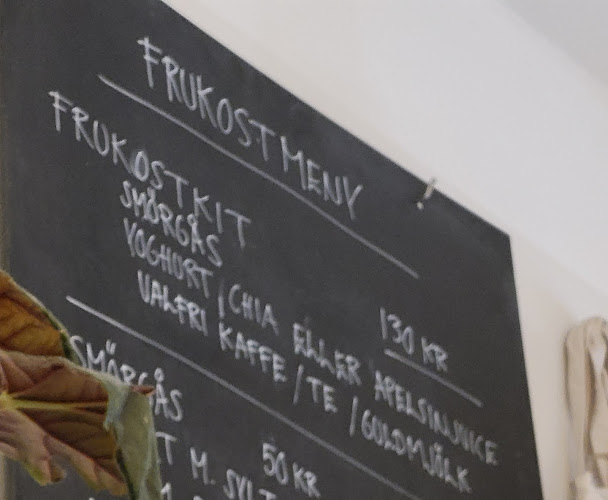 FRUKOSTMENY
FRUKOSTKIT 130 KR
SMÖRGÅS
YOGHURT/CHIA ELLER APELSINJUICE
VALFRI KAFFE/TE/GULDMJÖLK
SMÖRGÅS 50 KR
M. SYLT